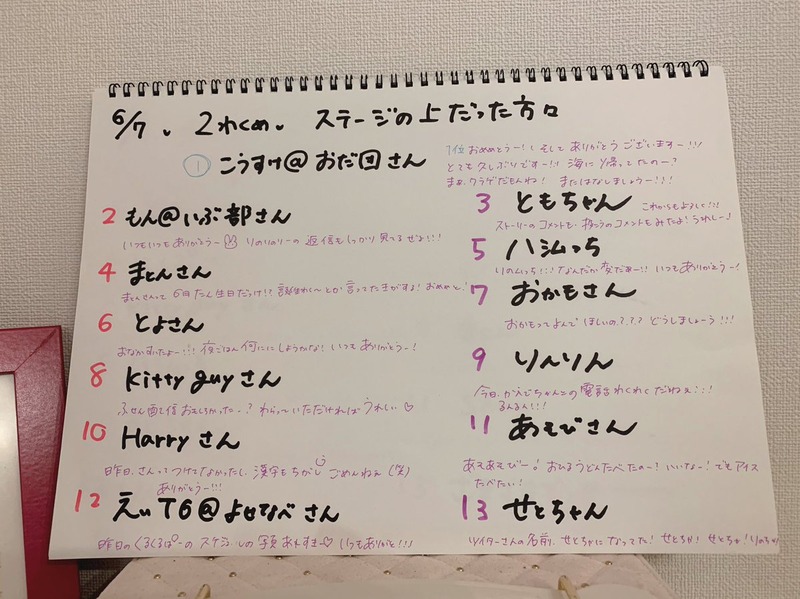 6/7、2わくめ、ステージの上だった方々
① こうすけ@おだ団さん
1位おめめとうー!! そしてありがとうございますー!!!
とても久しぶりですー!! 海に帰ってたのー?
まぁ、クラゲだもんね! またはなしましょうー!!!
2 もん@いぶ部さん
いつもいつもありがとうー りのりのりーの返信もしっかり見てるぜよ!!!
3 ともちゃん これからもよろしく!!!
ストーリーのコメントも、のコメントもみたよ! うれしー!
4 まとんさん
まとんさんって6月たん生日だっけ!? 誕生わく〜とか言ってた気がする! おめめと!
5 ハシムっち
りのムっち!!! なんだか変だぁー!! いつもありがとうー!
6 とよさん
おなかすいたよー!!! 夜ごはん何ににしようかな! いつもありがとうー!
7 おかもさん
おかもってよんでほしいの??? どうしましょーう!!!
8 Kitty guyさん
ふせん配信おもしろかったー? わらっていただければうれしい♡
9 りんりん
今日、かえでちゃんこの電話わくわくだねぇ!!!
るんるん!!!
10 Harryさん
昨日、さんってつけてなかったし、漢字もちがくごめんねぇ(笑)
ありがとうー!!!
11 あそびさん
あそあそびー! おひるうどんたべたのー! いいなー! でもアイス
たべたい!
12 えいT6@よせなべさん
昨日のくるくるぱーのスケジュールの写真 いつもありがと!!!
13 せとちゃん
ツイターさんの名前、せとちゃになってた! せとちゃ! せとちゃ! りのちゃ!